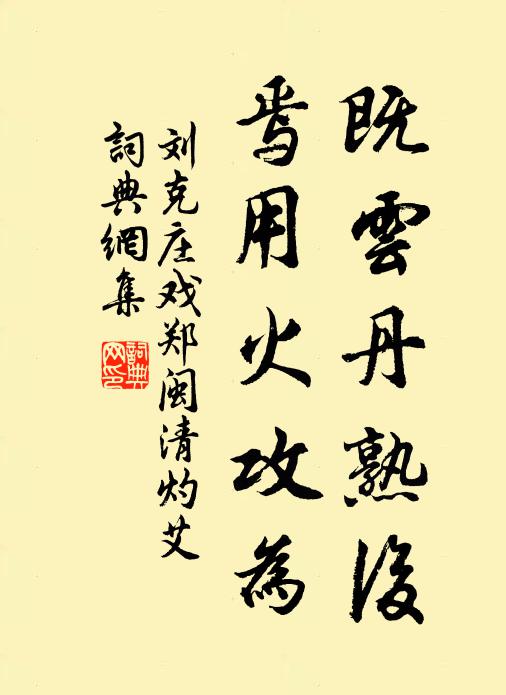 既雲丹熟後
焉用火攻為
刘克庄戏郑闽清灼艾
詞典網集
詞典網印